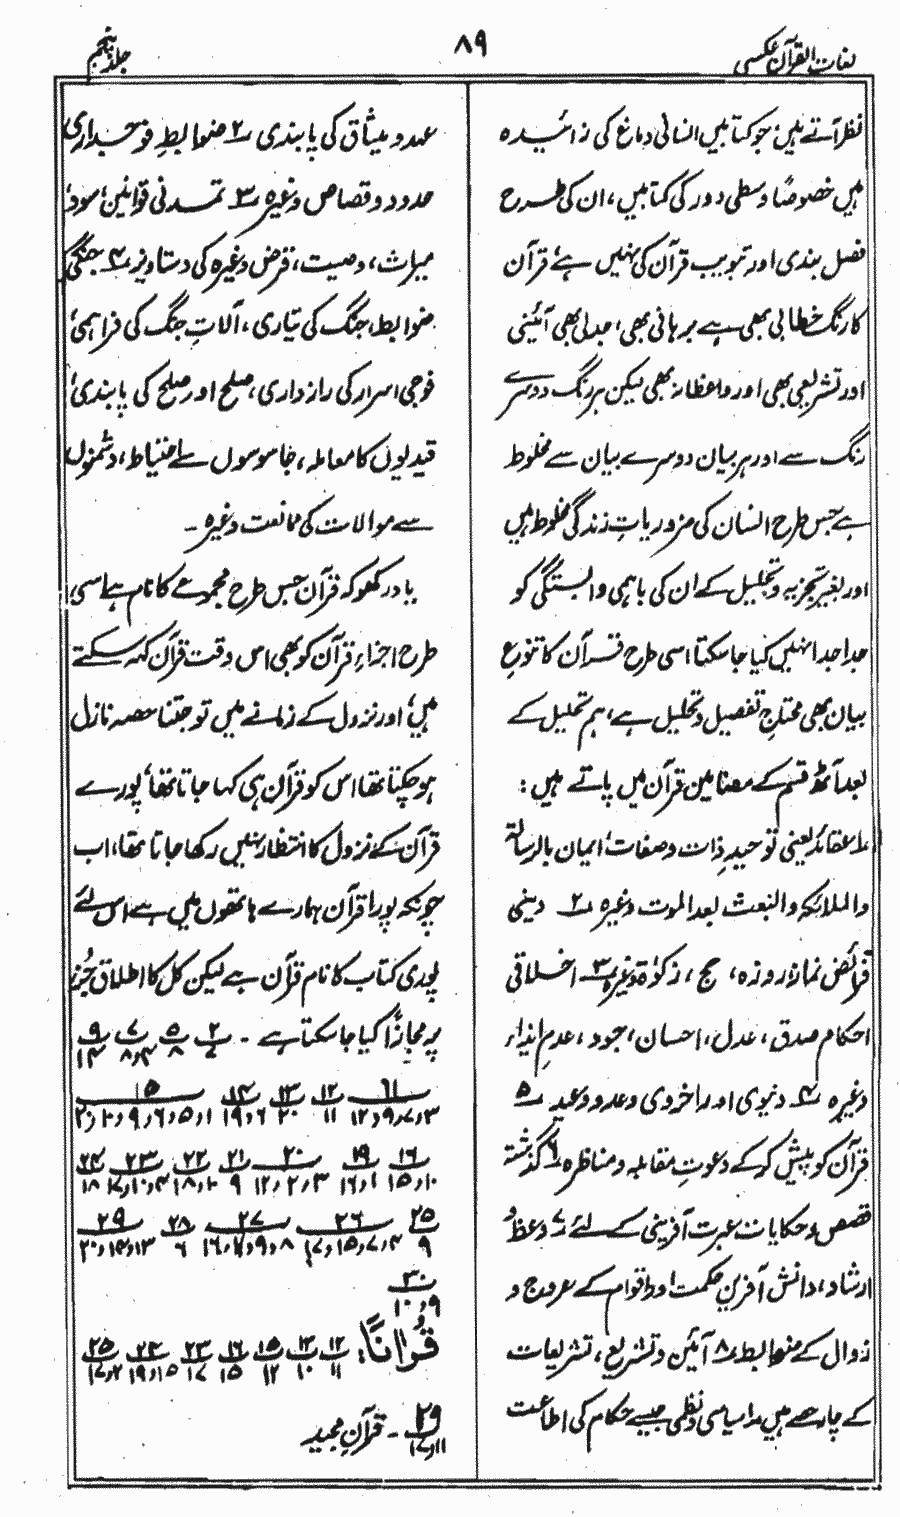 لغات القرآن عکسی
۸۹
جلد پنجم
نظر آتے ہیں؛ جو کتابیں انسانی دماغ کی زائیدہ
ہیں خصوصًا وسطی دور کی کتابیں، ان کی طرح
فصل بندی اور تبویب قرآن کی نہیں ہے، قرآن
کا رنگ خطابی بھی ہے برہانی بھی، جدلی بھی آئینی
اور تشریعی بھی اور واعظانہ بھی لیکن ہر رنگ دوسرے
رنگ سے اور ہر بیان دوسرے بیان سے مخلوط
ہے جس طرح انسان کی ضروریاتِ زندگی مخلوط ہیں
اور بغیر تجزیہ و تحلیل کے ان کی باہمی وابستگی کو
جدا جدا نہیں کیا جا سکتا اسی طرح قرآن کا تنوعِ
بیان بھی محتاجِ تفصیل و تحلیل ہے، ہم تحلیل کے
بعد آٹھ قسم کے مضامین قرآن میں پاتے ہیں:
۱؎ عقائد یعنی توحیدِ ذات و صفات، ایمان بالرسالۃ
والملائکہ والبعث بعد الموت وغیرہ ۲؎ دینی
فرائض نماز، روزہ، حج، زکوٰۃ وغیرہ ۳؎ اخلاقی
احکام صدق، عدل، احسان، جود، عدمِ ایذاء
وغیرہ ۴؎ دنیوی اور اخروی وعدہ و وعید ۵؎
قرآن کو پیش کر کے دعوتِ مقابلہ و مناظرہ ۶؎ گذشتہ
قصص و حکایات عبرت آفرینی کے لئے ۷؎ وعظ و
ارشاد، دانش آفریں حکمت اور اقوام کے عروج و
زوال کے ضوابط ۸؎ آئین و تشریع، تشریعات
کے چار حصے ہیں ۱؎ سیاسی و نظمی جیسے حکام کی اطاعت
عہد و میثاق کی پابندی ۲؎ ضوابطِ فوجداری
حدود و قصاص وغیرہ ۳؎ تمدنی قوانین، سود،
میراث، وصیت، قرض وغیرہ کی دستاویز ۴؎ جنگی
ضوابط، جنگ کی تیاری، آلاتِ جنگ کی فراہمی،
فوجی اسرار کی رازداری، صلح اور صلح کی پابندی،
قیدیوں کا معاملہ، جاسوسوں سے احتیاط، دشمنوں
سے موالات کی ممانعت وغیرہ ۔
یاد رکھو کہ قرآن جس طرح مجموعے کا نام ہے اسی
طرح اجزاءِ قرآن کو بھی اس وقت قرآن کہہ سکتے
ہیں، اور نزول کے زمانے میں تو جتنا حصہ نازل
ہو چکتا تھا اس کو قرآن ہی کہا جاتا تھا، پورے
قرآن کے نزول کا انتظار نہیں رکھا جاتا تھا، اب
چونکہ پورا قرآن ہمارے ہاتھوں میں ہے اس لئے
پوری کتاب کا نام قرآن ہے لیکن کل کا اطلاق جُز
پر مجازًا کیا جا سکتا ہے ۔ ۲ ۵ ۷ ۹
۷ ۸ ۸٫۴ ۱۴
۱۱ ۱۲ ۱۳ ۱۴ ۱۵
۳٫۷٫۹٫۱۲ ۱۱ ۲۰ ۱۹٫۶
۱۶ ۱۹ ۲۰ ۲۱ ۲۲ ۲۳ ۲۴
۱۵٫۱۰ ۱۶٫۱ ۱۲٫۲٫۳ ۹ ۱۸٫۱۰ ۱۷٫۱۰٫۴ ۱۸
۲۵ ۲۶ ۲۷ ۲۸ ۲۹
۹ ۱۷٫۱۵٫۷٫۴ ۱۶٫۱۷٫۹٫۸ ۶ ۲۰٫۱۴٫۱۳
۳۰
۹٫۱۰
قُرْاٰنًا: ۱۲ ۱۳ ۱۵ ۱۶ ۲۳ ۲۴ ۲۵
۱۱ ۱۰ ۱۲ ۱۵ ۱۷ ۱۹٫۱۵ ۱۷٫۲
۲۹ ۔ قرآنِ مجید
۱۷٫۱۱